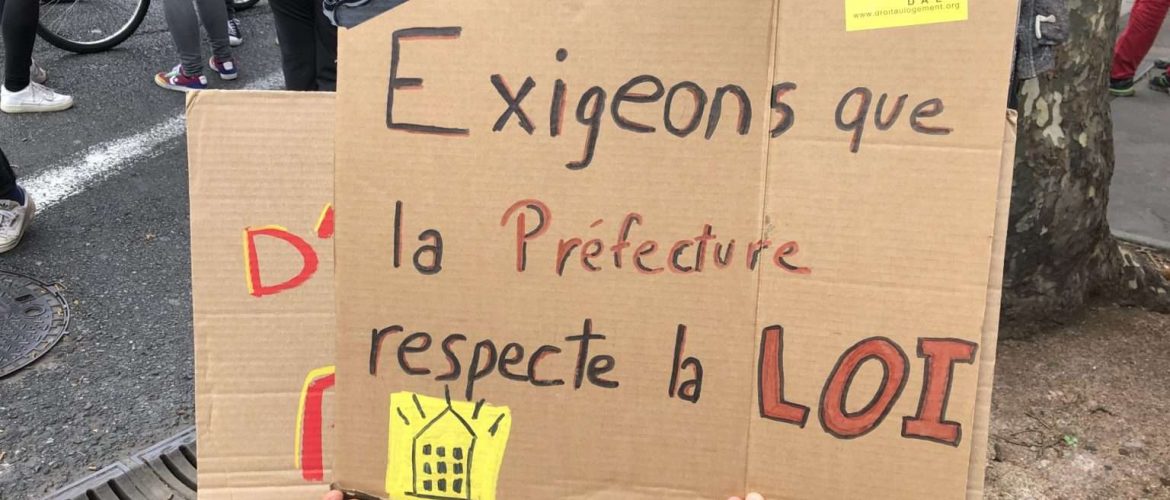 DAL
www.droitaulogement.org
Exigeons que
la Préfecture
respecte la LOI
D'